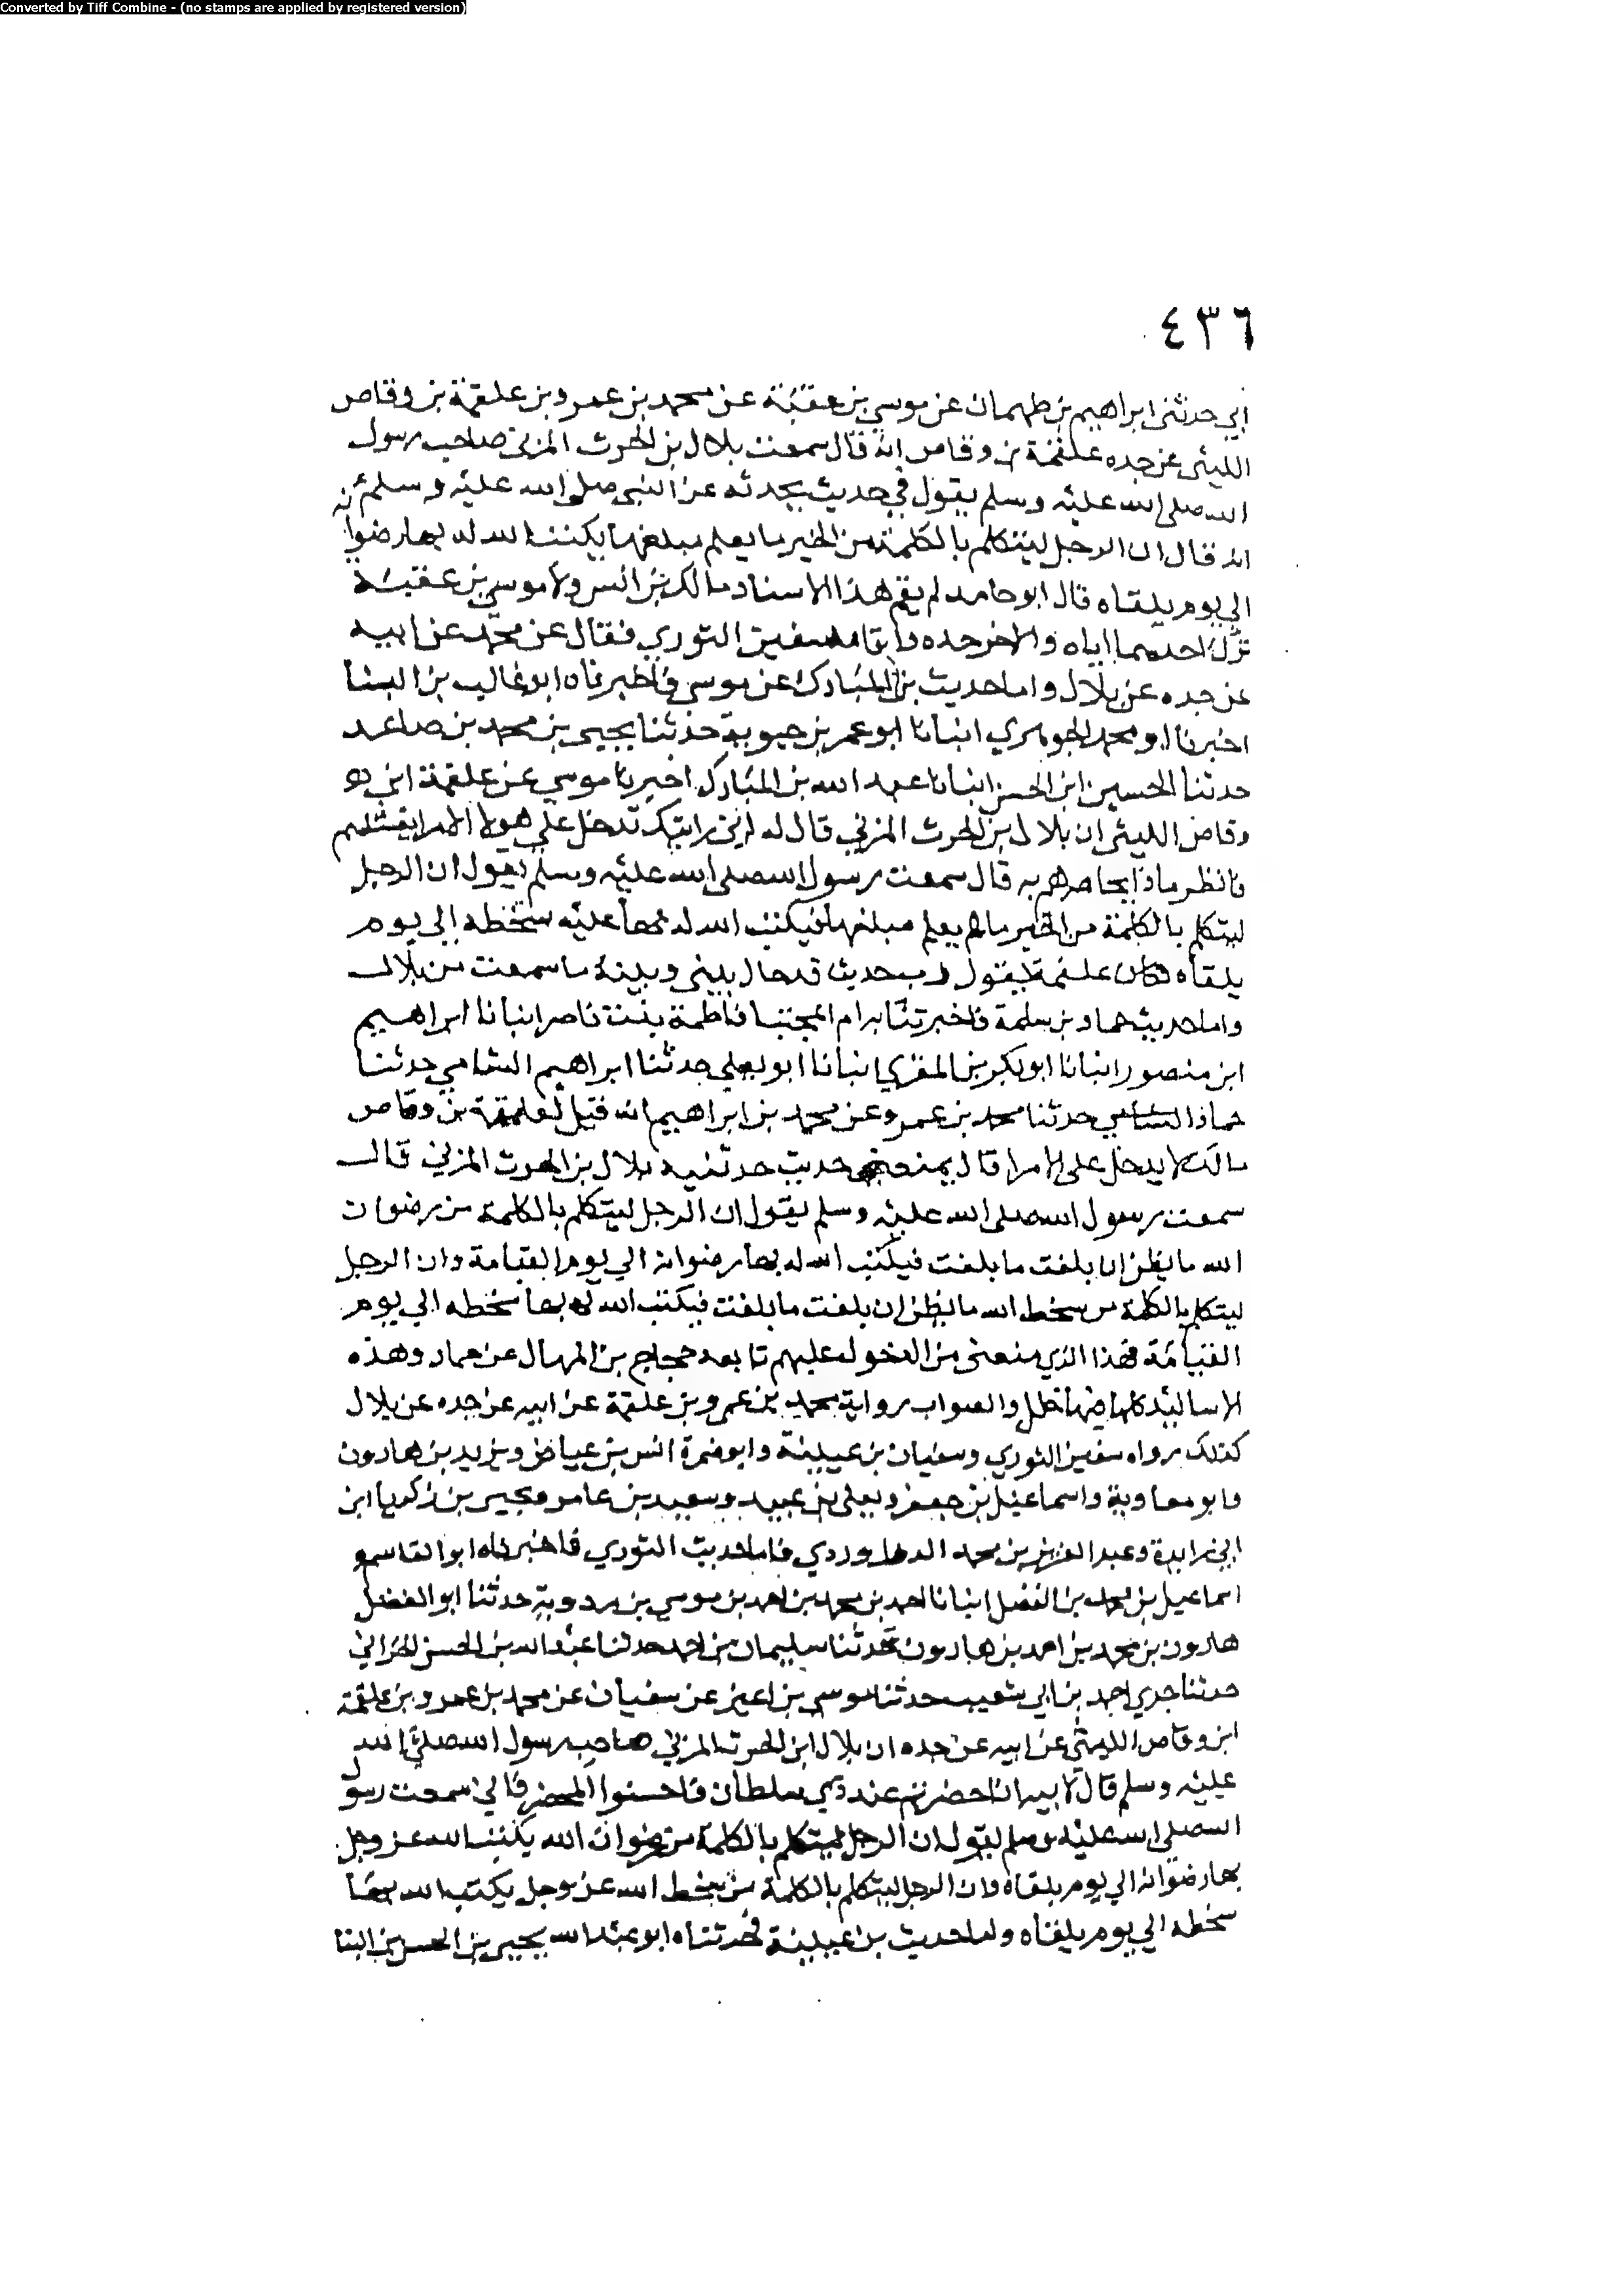 Converted by Tiff Combine - (no stamps are applied by registered version)
٤٣٦
ابي حدثني ابراهيم بن طهمان عن موسي بن عقبة عن محمد بن عمرو بن علقمة بن وقاص
الليثي عن جده علقمة بن وقاص انه قال سمعت بلال بن الحرث المزني صاحب رسول
الله صلى الله عليه وسلم يقول في حديث يحدثه عن النبي صلى الله عليه وسلم
انه قال ان الرجل ليتكلم بالكلمة من الخير ما يعلم مبلغها يكتب الله له بها رضوانه
الي يوم يلقاه قال ابو حامد لم يقم هذا الاسناد مالك بن انس ولا موسي بن عقبة
ترك احدهما اباه والاخر جده واقامه سفين الثوري فقال عن محمد عن ابيه
عن جده عن بلال واما حديث بن المبارك عن موسي فاخبرناه ابو غالب بن البنا
اخبرنا ابو محمد الجوهري انبانا ابو عمر بن حيوية حدثنا يحيى بن محمد بن صاعد
حدثنا الحسين ابن الحسن انبانا عبد الله بن المبارك اخبرنا موسي عن علقمة ابن
وقاص الليثي ان بلال بن الحرث المزني قال له اني رايتك تدخل علي هولا الامرا
فانظر ماذا تحاضرهم به قال سمعت رسول الله صلى الله عليه وسلم يقول ان الرجل
ليتكلم بالكلمة من الخير ما يعلم مبلغها فيكتب الله له بها عليه سخطه الي يوم
يلقاه فكان علقمة يقول رب حديث قد حال بيني وبينه ما سمعت من بلال
واما حديث حماد بن سلمة فاخبرتنا به ام المجتبا فاطمة بنت ناصر انبانا ابراهيم
ابن منصور انبانا ابو بكر بن المقري انبانا ابو يعلي حدثنا ابراهيم الشامي حدثنا
حماد الشامي حدثنا محمد بن عمرو عن محمد بن ابراهيم انه قيل لعلقمة بن وقاص
مالك لا يدخل على الامرا قال يمنعني حديث حدثنيه بلال بن الحرث المزني قال
سمعت رسول الله صلى الله عليه وسلم يقول ان الرجل ليتكلم بالكلمة من رضوان
الله ما يظن ان بلغت ما بلغت فيكتب الله له بها رضوانه الي يوم القيامة وان الرجل
ليتكلم بالكلمة من سخط الله ما يظن ان بلغت ما بلغت فيكتب الله له بها سخطه الي يوم
القيامة فهذا الذي منعني من الدخول عليهم تابعه حجاج بن المنهال عن حماد وهذه
الاسانيد كلها فيها خلل والصواب رواية محمد بن عمرو بن علقمة عن ابيه عن جده عن بلال
كذلك رواه سفين الثوري وسفيان بن عيينة وابو ضمرة انس بن عياض ويزيد بن هارون
وابو معاوية واسماعيل بن جعفر ويعلي بن عبيد وسعيد بن عامر ويحيى بن زكريا ابن
ابي زايدة وعبد العزيز بن محمد الدراوردي فاما حديث الثوري فاخبرناه ابو القاسم
اسماعيل بن محمد بن الفضل انبانا احمد بن محمد بن احمد بن موسي بن مردوية حدثنا ابو الفضل
هارون بن محمد بن احمد بن هارون حدثنا سليمان بن احمد حدثنا عبد الله بن الحسن الحراني
حدثنا جدي احمد بن ابي شعيب حدثنا موسي بن اعين عن سفيان عن محمد بن عمرو بن علقمة
ابن وقاص الليثي عن ابيه عن جده ان بلال ابن الحرث المزني صاحب رسول الله صلى الله
عليه وسلم قال لابيه اذا حضرتم عند ذي سلطان فاحسنوا المحضر فاني سمعت رسول
الله صلى الله عليه وسلم يقول ان الرجل ليتكلم بالكلمة من رضوان الله يكتب الله عز وجل
بها رضوانه الي يوم يلقاه وان الرجل ليتكلم بالكلمة من سخط الله عز وجل يكتب الله بها
سخطه الي يوم يلقاه واما حديث بن عيينة فحدثناه ابو عبد الله يحيى بن الحسن بن البنا